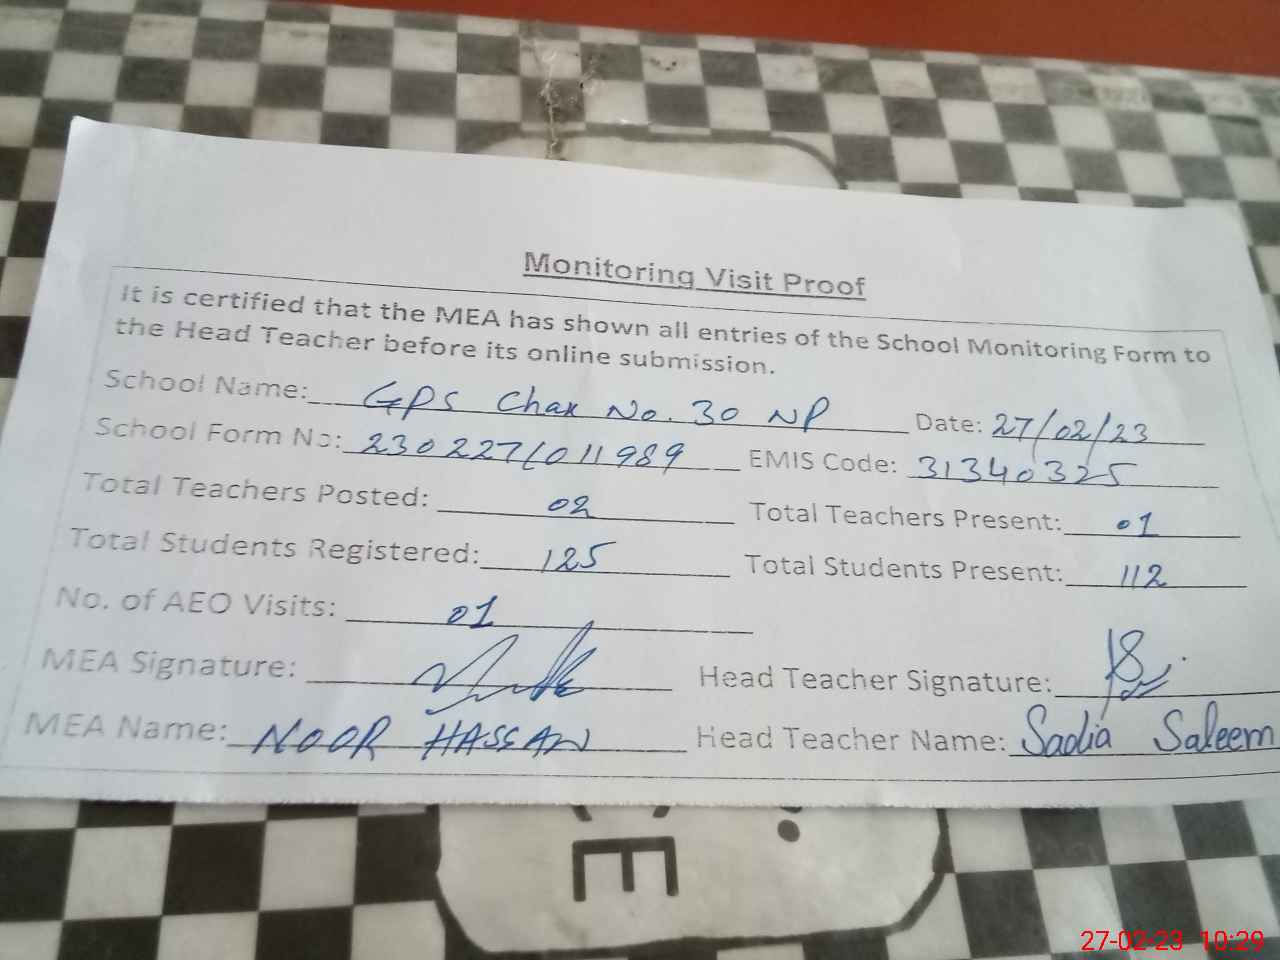 Monitoring Visit Proof
It is certified that the MEA has shown all entries of the School Monitoring Form to
the Head Teacher before its online submission.
School Name: GPS Chak No. 30 NP Date: 27/02/23
School Form No: 230227/011989 EMIS Code: 31340325
Total Teachers Posted: 02 Total Teachers Present: 01
Total Students Registered: 125 Total Students Present: 112
No. of AEO Visits: 01
MEA Signature: Head Teacher Signature:
MEA Name: NOOR HASSAN Head Teacher Name: Sadia Saleem
27-02-23 10:29